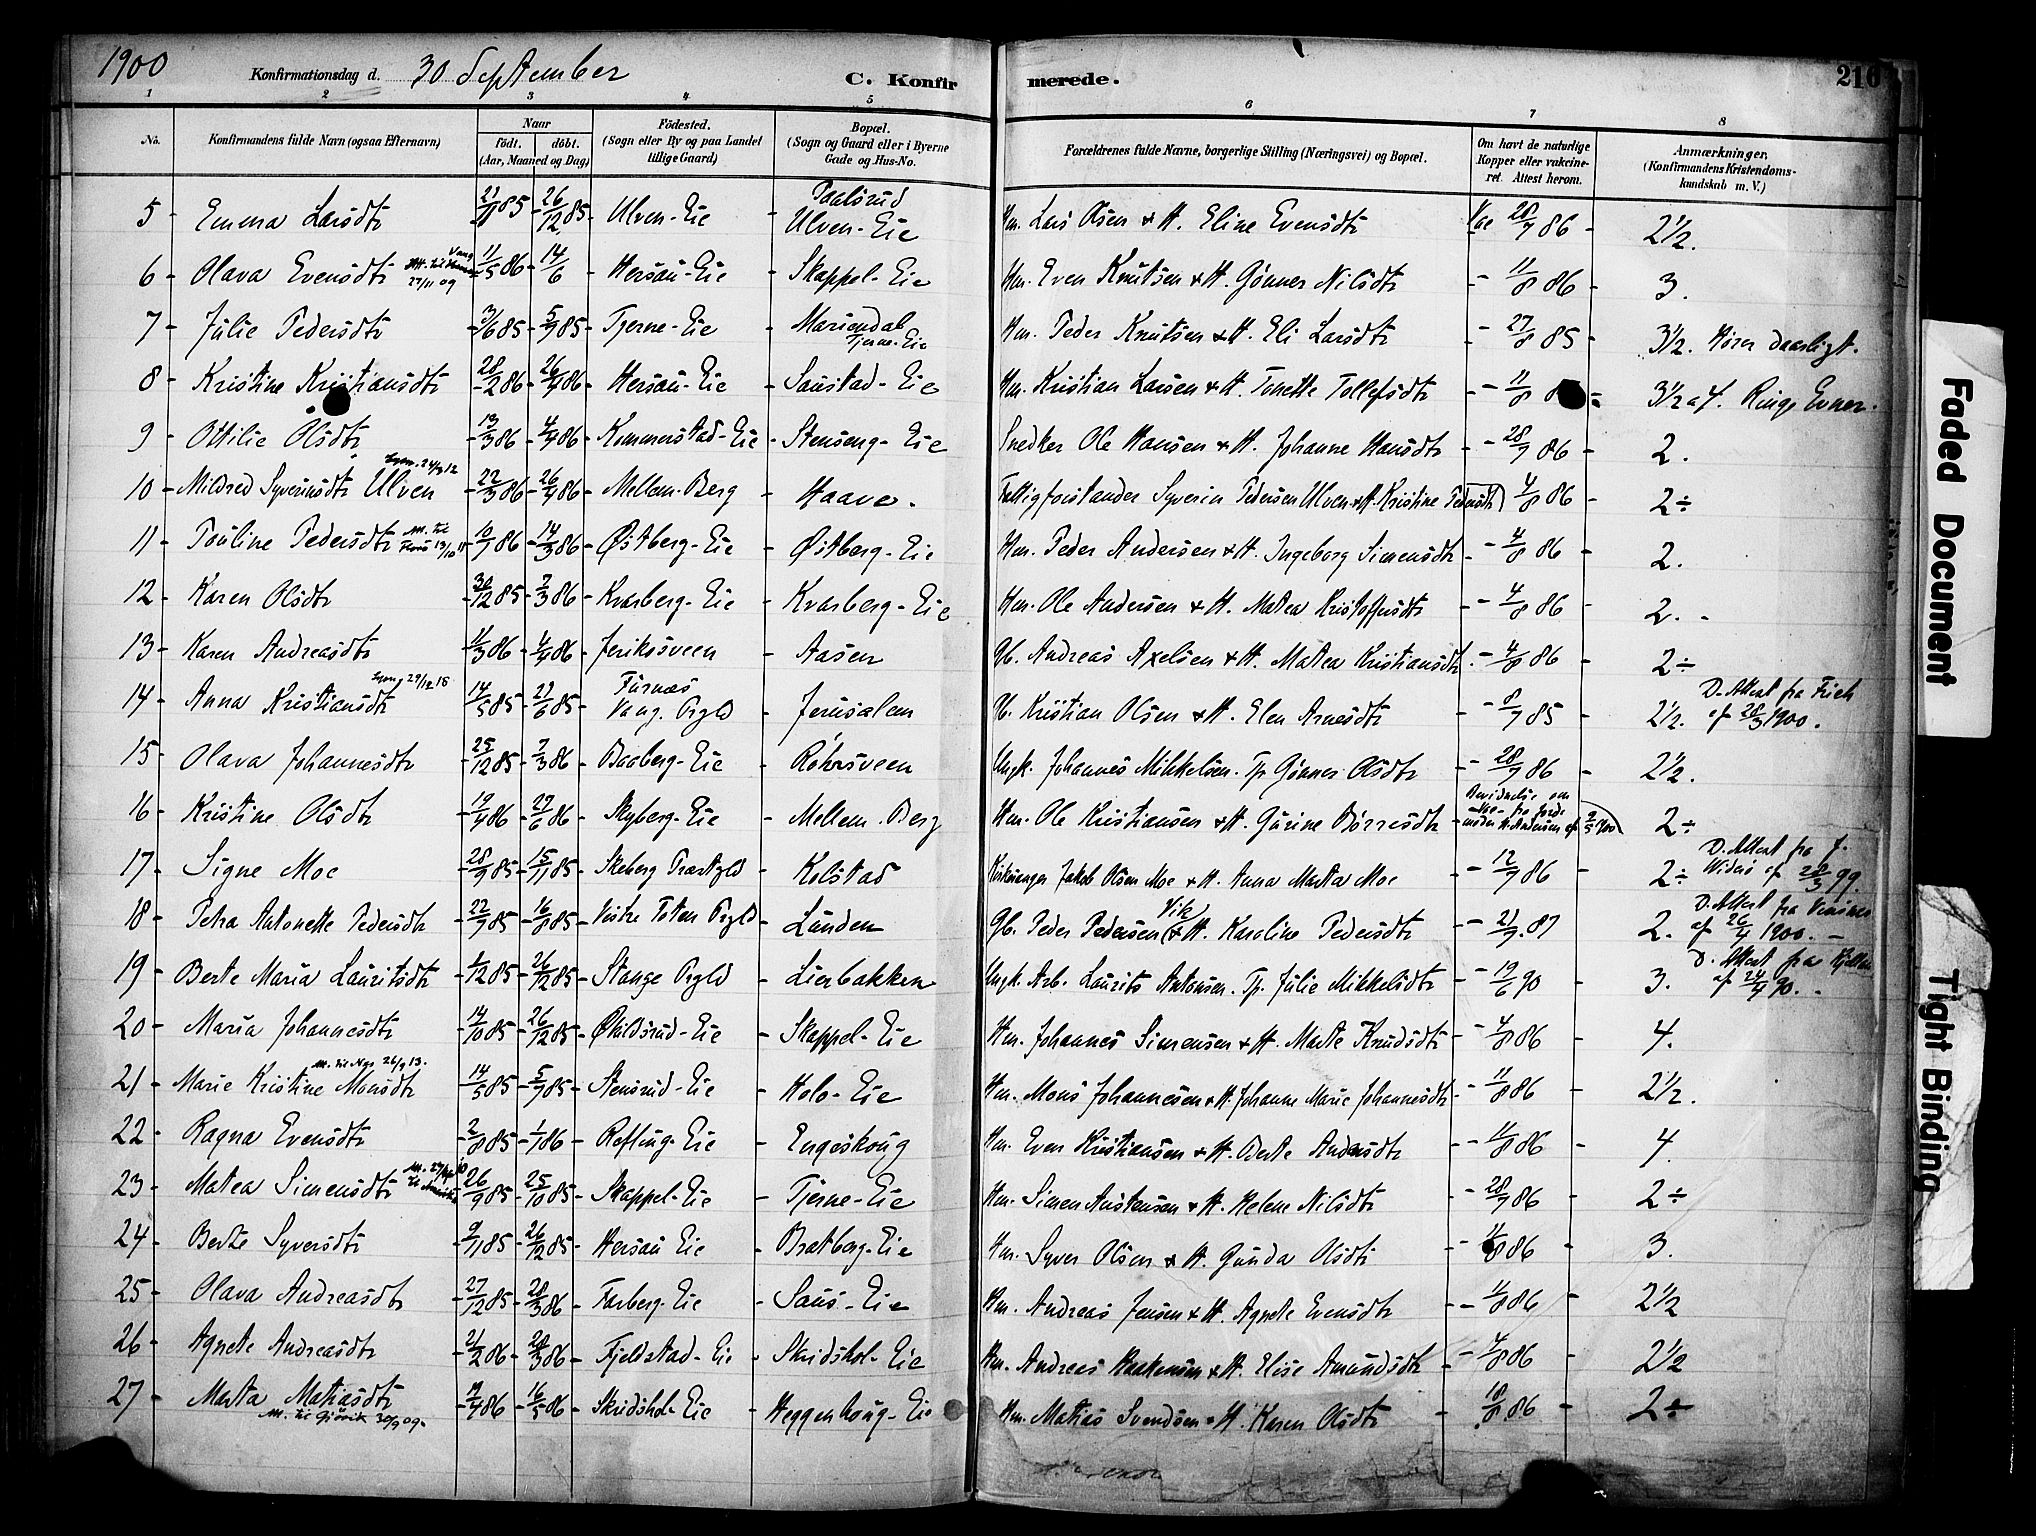 1900
Konfirmationsdag d. 30 September
C. Konfirmerede.
216
1 2 3 4 5 6 7 8
No.
Konfirmandens fulde Navn (ogsaa Efternavn)
Naar
födt. döbt.
(Aar, Maaned og Dag)
Födested.
(Sogn eller By og paa Landet
tillige Gaard)
Bopæl.
(Sogn og Gaard eller i Byerne
Gade og Hus-No.
Forældrenes fulde Navne, borgerlige Stilling (Næringsvei) og Bopæl.
Om havt de naturlige
Kopper eller vakcine-
ret. Attest herom.
Anmærkninger.
(Konfirmandens Kristendoms-
kundskab m. V.)
5 - Emma Larsdtr 21/11 85 - 26/12 85 - Ulven - Eie - Paalsrud Ulven - Eie Hm. Lars Olsen & H. Eline Evensdtr Vac 28/7 86 - 2 1/2.
6 - Olava Evensdtr 11/5 86 - 14/6 - Hersau - Eie - Skappel - Eie Hm. Even Knutsen & H. Gønner Nilsdtr - 11/8 86 - 3.
7 - Julie Pedersdtr 3/6 85 - 5/7 85 - Tjerne - Eie - Mariendal Tjerne - Eie Hm. Peder Knutsen & H. Eli Larsdtr - 27/8 85 - 3 1/2. Hører daarligt.
8 - Kristine Kristiansdtr 28/2 86 - 26/4 86 - Hersau - Eie - Saustad - Eie Hm. Kristian Larsen & H. Tonette Tollefsdtr - 11/8 - 3 1/2 a 4. Ringe Evner.
9 - Ottilie Olsdtr 13/3 86 - 4/4 86 - Kommerstad - Eie - Stenseng - Eie Snedker Ole Hansen & H. Johanne Hansdtr - 28/7 86 - 2.
10 - Mildred Syverinsdtr Ulven 22/3 86 - 26/4 86 - Mellem - Berg - Haave. Fattigforstander Syverin Pedersen Ulven & H. Kristine Pedersdtr 4/8 86 - 2 ÷
11 - Pauline Pedersdtr 10/1 86 - 14/3 86 - Østberg - Eie - Østberg - Eie Hm. Peder Andersen & H. Ingeborg Simensdtr - 4/8 86 - 2.
12 - Karen Olsdtr 30/12 85 - 7/3 86 - Kvarberg - Eie - Kvarberg - Eie Hm. Ole Andersen & H. Matea Kristoffersdtr - 4/8 86 - 2. -
13 - Karen Andreasdtr 1/3 86 - 4/4 86 - Jerikosveen - Aasen Gb. Andreas Axelsen & H. Matea Kristiansdtr. - 4/8 86 - 2 ÷
14 - Anna Kristiansdtr 14/5 85 - 21/6 85 - Furnæs Vang. Prgld - Jerusalem Gb. Kristian Olsen & H. Elen Arnesdtr - 8/7 85 - 2 1/2. D. Attest fra Frich af 28/3 1900.
15 - Olava Johannesdtr 25/12 85 - 7/3 86 - Baaberg - Eie - Röhrsveen Ungk. Johannes Mikkelsen. Tp. Gønner Olsdtr - 28/7 86 - 2 1/2.
16 - Kristine Olsdtr 19/4 86 - 27/6 86 - Skyberg - Eie - Mellem Berg Hm. Ole Kristiansen & H. Gurine Børresdtr - 2 ÷
17 - Signe Moe 28/9 85 - 15/11 85 - Skeberg Præstgld - Kolstad Kirkesanger Jakob Olsen Moe & H. Anna Marta Moe - 12/7 86 - 2 ÷ D. Attest fra J. af 28/3 99.
18 - Petra Antonette Pedersdtr 22/7 85 - 16/8 85 - Vestre Toten Prgld - Lunden Gb. Peder Pedersen Vik & H. Karoline Pedersdtr - 21/9. 87 2. D. Attest fra af 26/4 1900. -
19 - Berte Maria Lauritsdtr 1/12 85 - 26/12 85 - Stange Prgld - Lierbakken Ungk. Arb. Laurits Antonsen. Tp. Julie Mikkelsdtr - 19/6 90 - 3. D. Attest fra af 24/4 90. -
20 - Maria Johannesdtr 14/10 85 - 26/12 85 - Økildsrud - Eie - Skappel - Eie Hm. Johannes Simensen & H. Marte Knudsdtr - 4/8 86 - 4.
21 - Marie Kristine Monsdtr 14/5 85 - 5/7 85 - Stensrud - Eie - Holo - Eie Hm. Mons Johannesen & H. Johanne Marie Johannesdtr - 11/8 86 - 2 1/2.
22 - Ragna Evensdtr 2/8 85 - 1/1 86 - Refling - Eie - Engeskoug Hm. Even Kristiansen & H. Berte Andersdtr - 11/8 86 - 4
23 - Matea Simensdtr 26/9 85 - 25/10 85 - Skappel - Eie - Tjerne - Eie Hm. Simen Austensen & H. Helene Nilsdtr - 28/7 86 - 2 ÷
24 - Berte Syversdtr 9/11 85 - 26/12 85 - Hersau Eie - Bratberg - Eie Hm. Syver Olsen & H. Gunda Olsdtr - 11/8 86 - 3.
25 - Olava Andreasdtr 27/12 85 - 28/3 86 - Farberg - Eie - Saus - Eie Hm. Andreas Jensen & H. Agnete Evensdtr - 11/8 86 - 2 1/2
26 - Agnete Andreasdtr 21/2 86 - 28/3 86 - Fjeldstad - Eie - Skridshol - Eie Hm. Andreas Haakensen & H. Elise Amundsdtr - 4/8 86 - 2 1/2
27 - Marta Matiasdtr 19/4 86 - 16/5 86 - Skridshol - Eie - Heggenhoug - Eie Hm. Matias Svendsen & H. Karen Olsdtr - 18/8 86 - 2 ÷
Faded Document
Tight Binding